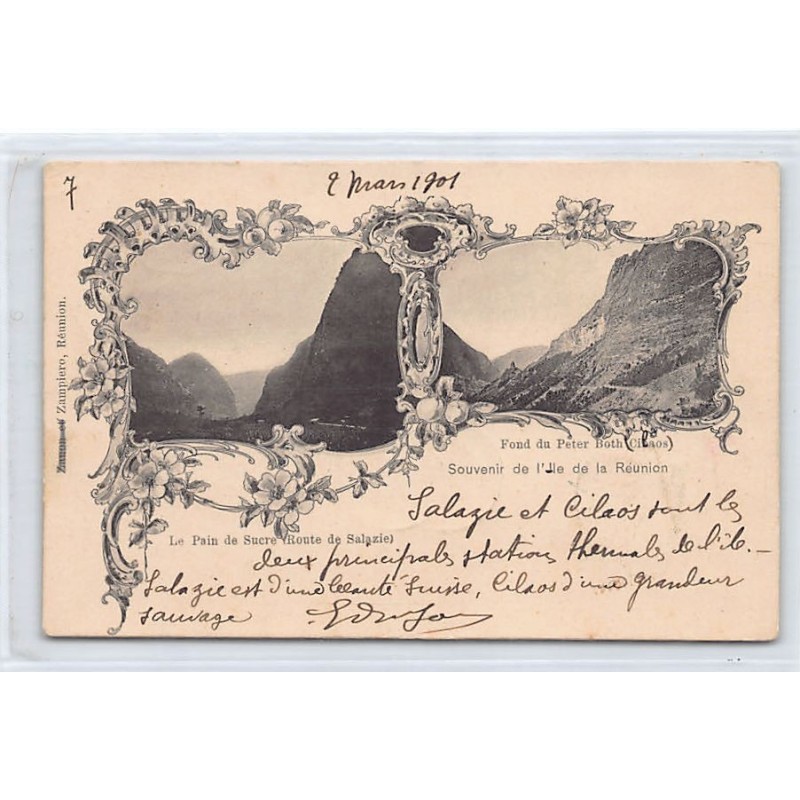 7
2 Mars 1901
Zampiero, Réunion.
Fond du Peter Both (Cilaos)
Souvenir de l'Ile de la Réunion
Le Pain de Sucre (Route de Salazie)
Salazie et Cilaos sont les
deux principales stations thermales de l'île.—
Salazie est d'une beauté Suisse, Cilaos d'une grandeur
sauvage